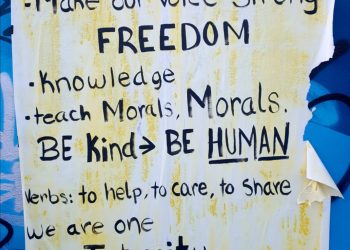 - Make our voice strong
FREEDOM
• Knowledge
• teach Morals, Morals.
BE Kind → BE HUMAN
Verbs: to help, to care, to share
we are one